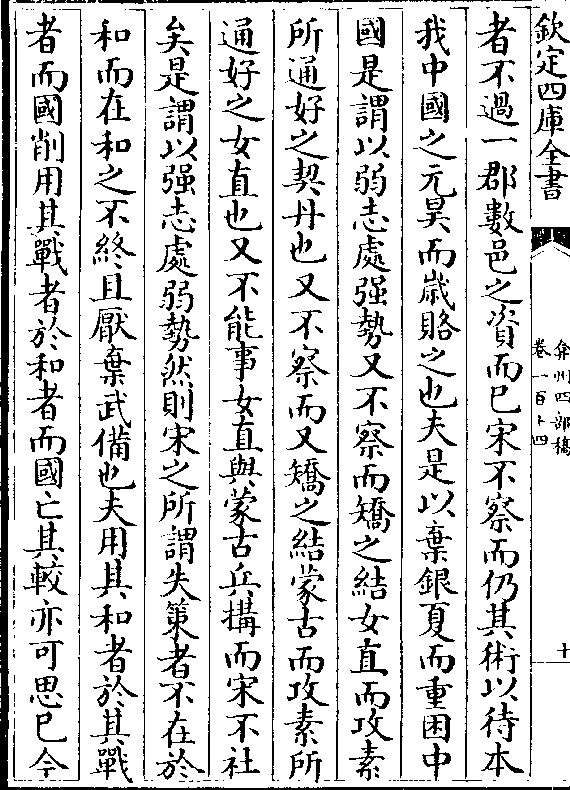 欽定四庫全書
弇州四部稿
卷一百十四
十
者不過一郡數邑之資而已宋不察而仍其術以待本
我中國之元昊而歲賂之也夫是以棄銀夏而重困中
國是謂以弱志處强勢又不察而矯之結女直而攻素
所通好之契丹也又不察而又矯之結蒙古而攻素所
通好之女直也又不能事女直與蒙古兵搆而宋不社
矣是謂以强志處弱勢然則宋之所謂失策者不在於
和而在和之不終且厭棄武備也夫用其和者於其戰
者而國削用其戰者於和者而國亡其較亦可思已今